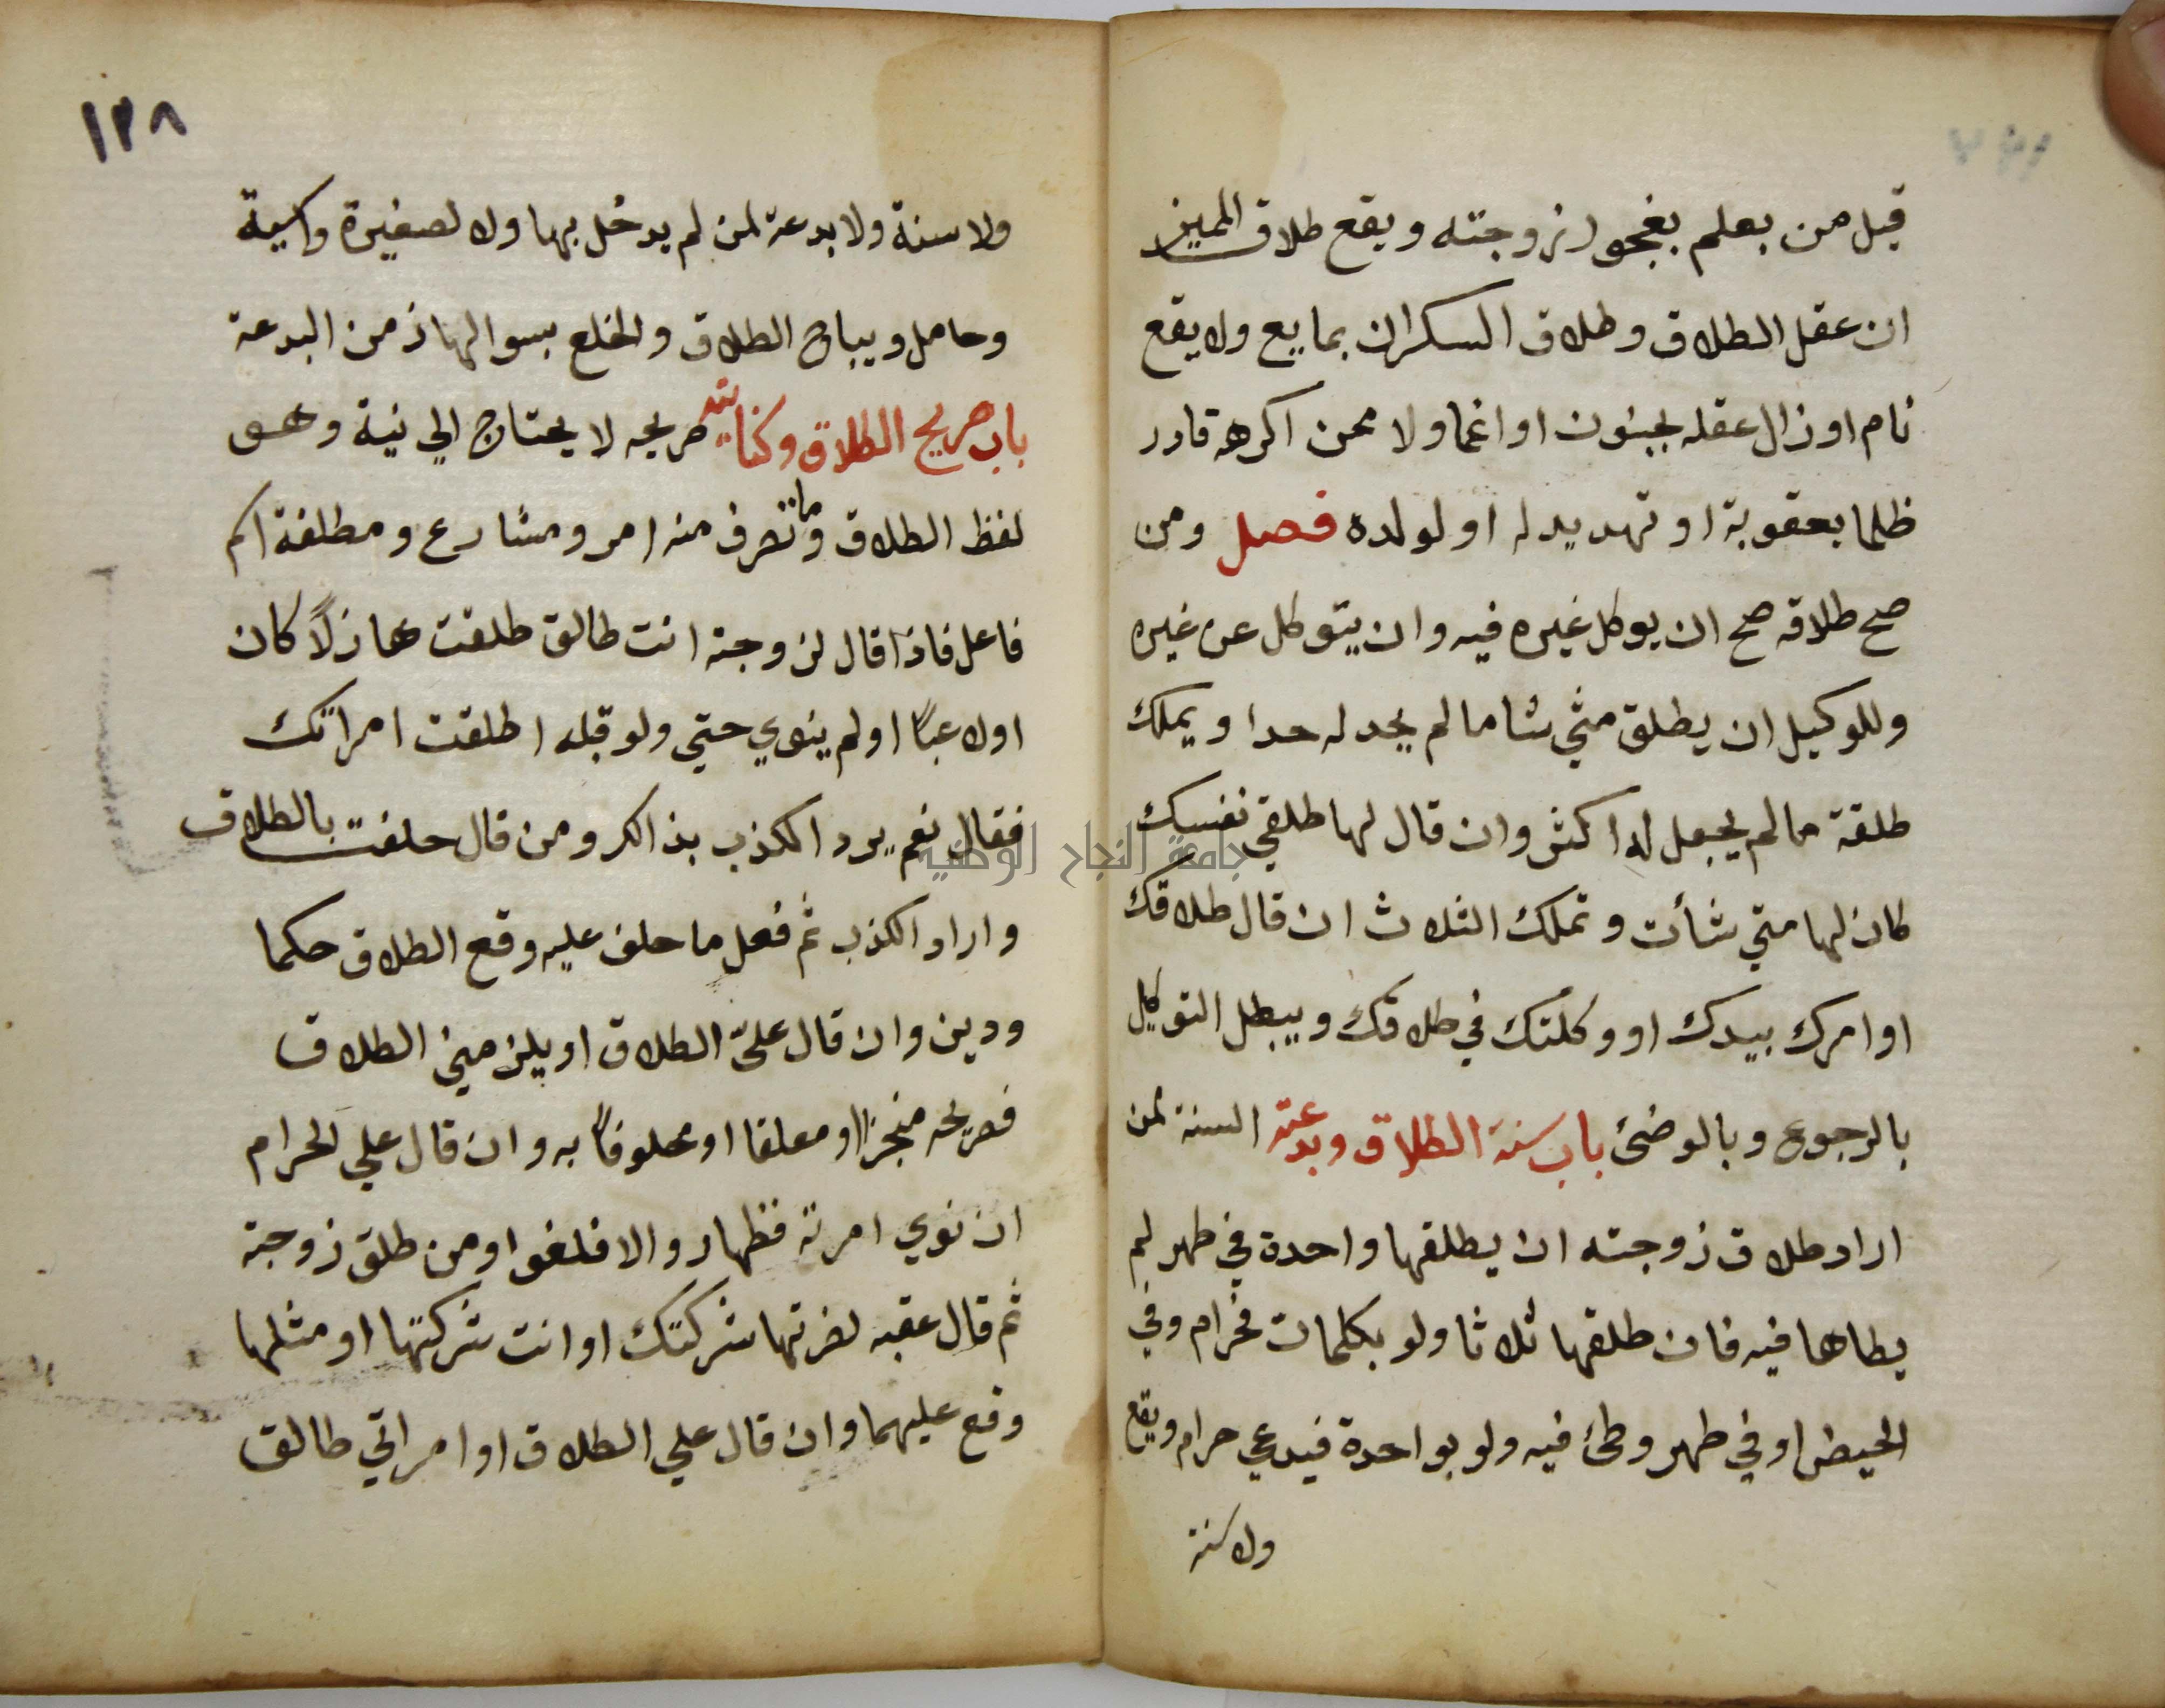 قبل من بعلم بفجور زوجته ويقع طلاق المميز
ان عقل الطلاق وطلاق السكران بمايع ولا يقع
نام او زال عقله بجنون او اغما ولا ممن اكرهه قادر
ظلما بعقوبة او تهديد له او لولده فصل ومن
صح طلاقه صح ان يوكل غيره فيه وان يتوكل عن غيره
وللوكيل ان يطلق متي شا ما لم يحد له حدا ويملك
طلقة ما لم يجعل له اكثر وان قال لها طلقي نفسك
كان لها متي شأت وتملك الثلاث ان قال طلاقك
او امرك بيدك او وكلتك في طلاقك ويبطل التوكيل
بالرجوع وبالوضئ باب سنة الطلاق وبدعته السنة لمن
اراد طلاق زوجته ان يطلقها واحدة في طهر لم
يطاها فيه فان طلقها ثلاثا ولو بكلمات فحرام وفي
الحيض او في طهر وطئ فيه ولو بواحدة فبدعي حرام ويقع
ولا سنة
١٢٨
ولا سنة ولا بدعة لمن لم يدخل بها ولا لصغيرة واسية
وحامل ويباح الطلاق والخلع بسوالها زمن البدعة
باب صريح الطلاق وكنايته صريحه لا يحتاج الي نية وهو
لفظ الطلاق وما تصرف منه امر ومضارع ومطلقة اسم
فاعل فاذا قال لزوجته انت طالق طلقت هازلاً كان
او لاعباً او لم ينوي حتي ولو قبله اطلقت امراتك
فقال نعم يرد الكذب بذالك ومن قال حلفت بالطلاق
واراد الكذب ثم فعل ما حلف عليه وقع الطلاق حكما
ودين وان قال عليّ الطلاق او يلزمني الطلاق
فصريحه منجزاً او معلقا او محلوفاً به وان قال علي الحرام
ان نوي امرته فظهار والا فلغوا ومن طلق زوجة
ثم قال عقبه لضرتها شركتك او انت شركتها او مثلها
وقع عليهما وان قال علي الطلاق او امراتي طالق
جامعة النجاح الوطنية